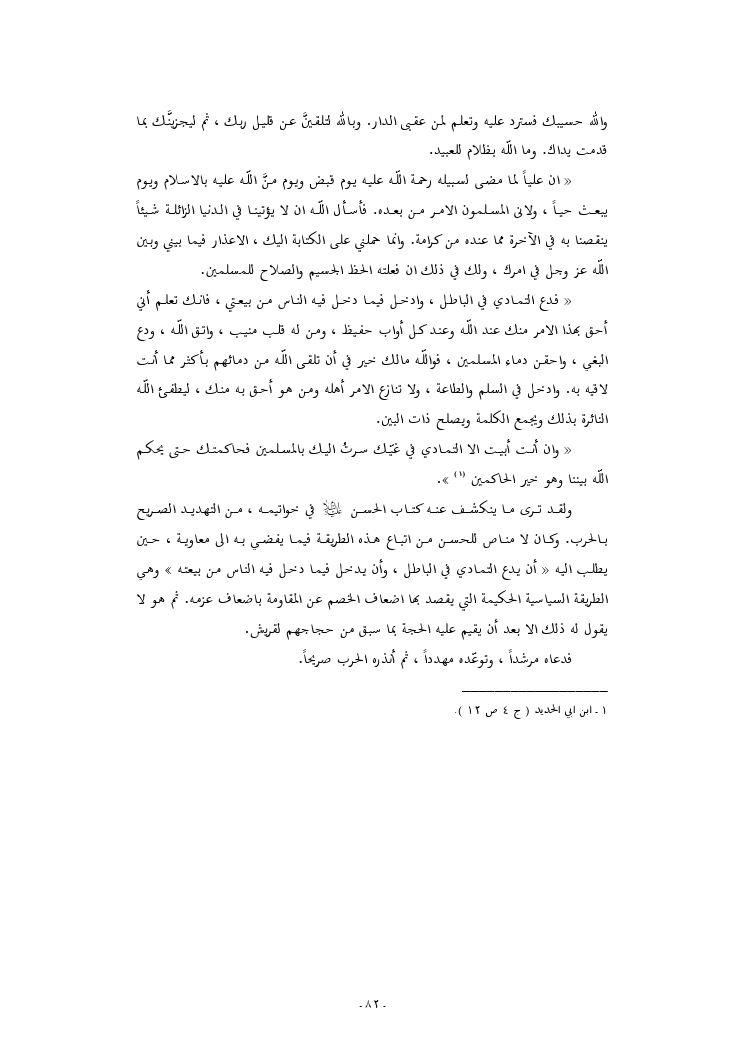 والله حسيبك فسترد عليه وتعلم لمن عقبى الدار. وبالله لتلقينَّ عن قليل ربك ، ثم ليجزينَّك بما
قدمت يداك. وما اللّه بظلام للعبيد.
« ان علياً لما مضى لسبيله رحمة اللّه عليه يوم قبض ويوم منَّ اللّه عليه بالاسلام ويوم
يبعث حياً ، ولانى المسلمون الامر من بعده. فأسأل اللّه ان لا يؤتينا في الدنيا الزائلة شيئاً
ينقصنا به في الآخرة مما عنده من كرامة. وانما حملني على الكتابة اليك ، الاعذار فيما بيني وبين
اللّه عز وجل في امرك ، ولك في ذلك ان فعلته الحظ الجسيم والصلاح للمسلمين.
« فدع التمادي في الباطل ، وادخل فيما دخل فيه الناس من بيعتي ، فانك تعلم أني
أحق بهذا الامر منك عند اللّه وعند كل أواب حفيظ ، ومن له قلب منيب ، واتق اللّه ، ودع
البغي ، واحقن دماء المسلمين ، فواللّه مالك خير في أن تلقى اللّه من دمائهم بأكثر مما أنت
لاقيه به. وادخل في السلم والطاعة ، ولا تنازع الامر أهله ومن هو أحق به منك ، ليطفئ اللّه
النائرة بذلك ويجمع الكلمة ويصلح ذات البين.
« وان أنت أبيت الا التمادي في غيّك سرتُ اليك بالمسلمين فحاكمتك حتى يحكم
اللّه بيننا وهو خير الحاكمين (١) ».
ولقد ترى ما ينكشف عنه كتاب الحسن عليه‌السلام في خواتيمه ، من التهديد الصريح
بالحرب. وكان لا مناص للحسن من اتباع هذه الطريقة فيما يفضي به الى معاوية ، حين
يطلب اليه « أن يدع التمادي في الباطل ، وأن يدخل فيما دخل فيه الناس من بيعته » وهي
الطريقة السياسية الحكيمة التي يقصد بها اضعاف الخصم عن المقاومة باضعاف عزمه. ثم هو لا
يقول له ذلك الا بعد أن يقيم عليه الحجة بما سبق من حجاجهم لقريش.
فدعاه مرشداً ، وتوعّده مهدداً ، ثم أنذره الحرب صريحاً.
١ ـ ابن ابي الحديد ( ج ٤ ص ١٢ ).
- ٨٢ -